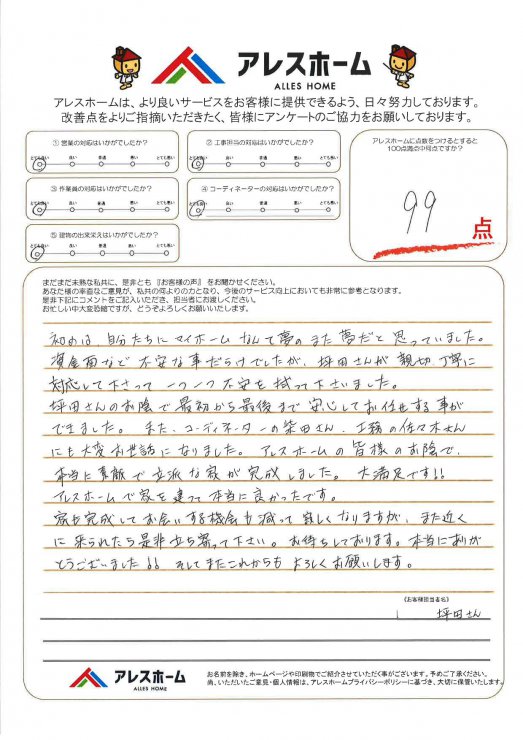 アレスホーム
ALLES HOME
アレスホームは、より良いサービスをお客様に提供できるよう、日々努力しております。
改善点をよりご指摘いただきたく、皆様にアンケートのご協力をお願いしております。
① 営業の対応はいかがでしたか?
とても良い 良い 普通 悪い とても悪い
② 工事担当の対応はいかがでしたか?
とても良い 良い 普通 悪い とても悪い
③ 作業員の対応はいかがでしたか?
とても良い 良い 普通 悪い とても悪い
④ コーディネーターの対応はいかがでしたか?
とても良い 良い 普通 悪い とても悪い
⑤ 建物の出来栄えはいかがでしたか?
とても良い 良い 普通 悪い とても悪い
アレスホームに点数をつけるとすると
100点満点中何点ですか?
99
点
まだまだ未熟な私共に、是非とも『お客様の声』をお聞かせください。
あなた様の率直なご意見が、私共の何よりの力となり、今後のサービス向上においても非常に参考となります。
是非下記にコメントをご記入いただき、担当者にお渡しください。
お忙しい中大変恐縮ですが、どうぞよろしくお願いします。
初めは、自分たちにマイホームなんて夢のまた夢だと思っていました。
資金面など不安な事だらけでしたが、坪田さんが親切丁寧に
対応して下さって一つ一つ不安を拭って下さいました。
坪田さんのお陰で最初から最後まで安心してお任せする事が
できました。また、コーディネーターの柴田さん、工務の佐々木さん
にも大変お世話になりました。アレスホームの皆様のお陰で、
本当に素敵で立派な家が完成しました。大満足です!!
アレスホームで家を建って本当に良かったです。
家も完成してお会いする機会も減って寂しくなりますが、また近く
に来られたら是非立ち寄って下さい。お待ちしております。本当にありが
とうございました!! そしてまたこれからもよろしくお願いします。
《お客様担当者名》
坪田さん
アレスホーム
ALLES HOME
お名前を除き、ホームページや印刷物でご紹介させていただく事がございます。予めご了承ください。
尚、いただいたご意見・個人情報は、アレスホームプライバシーポリシーに基づき、大切に保管いたします。